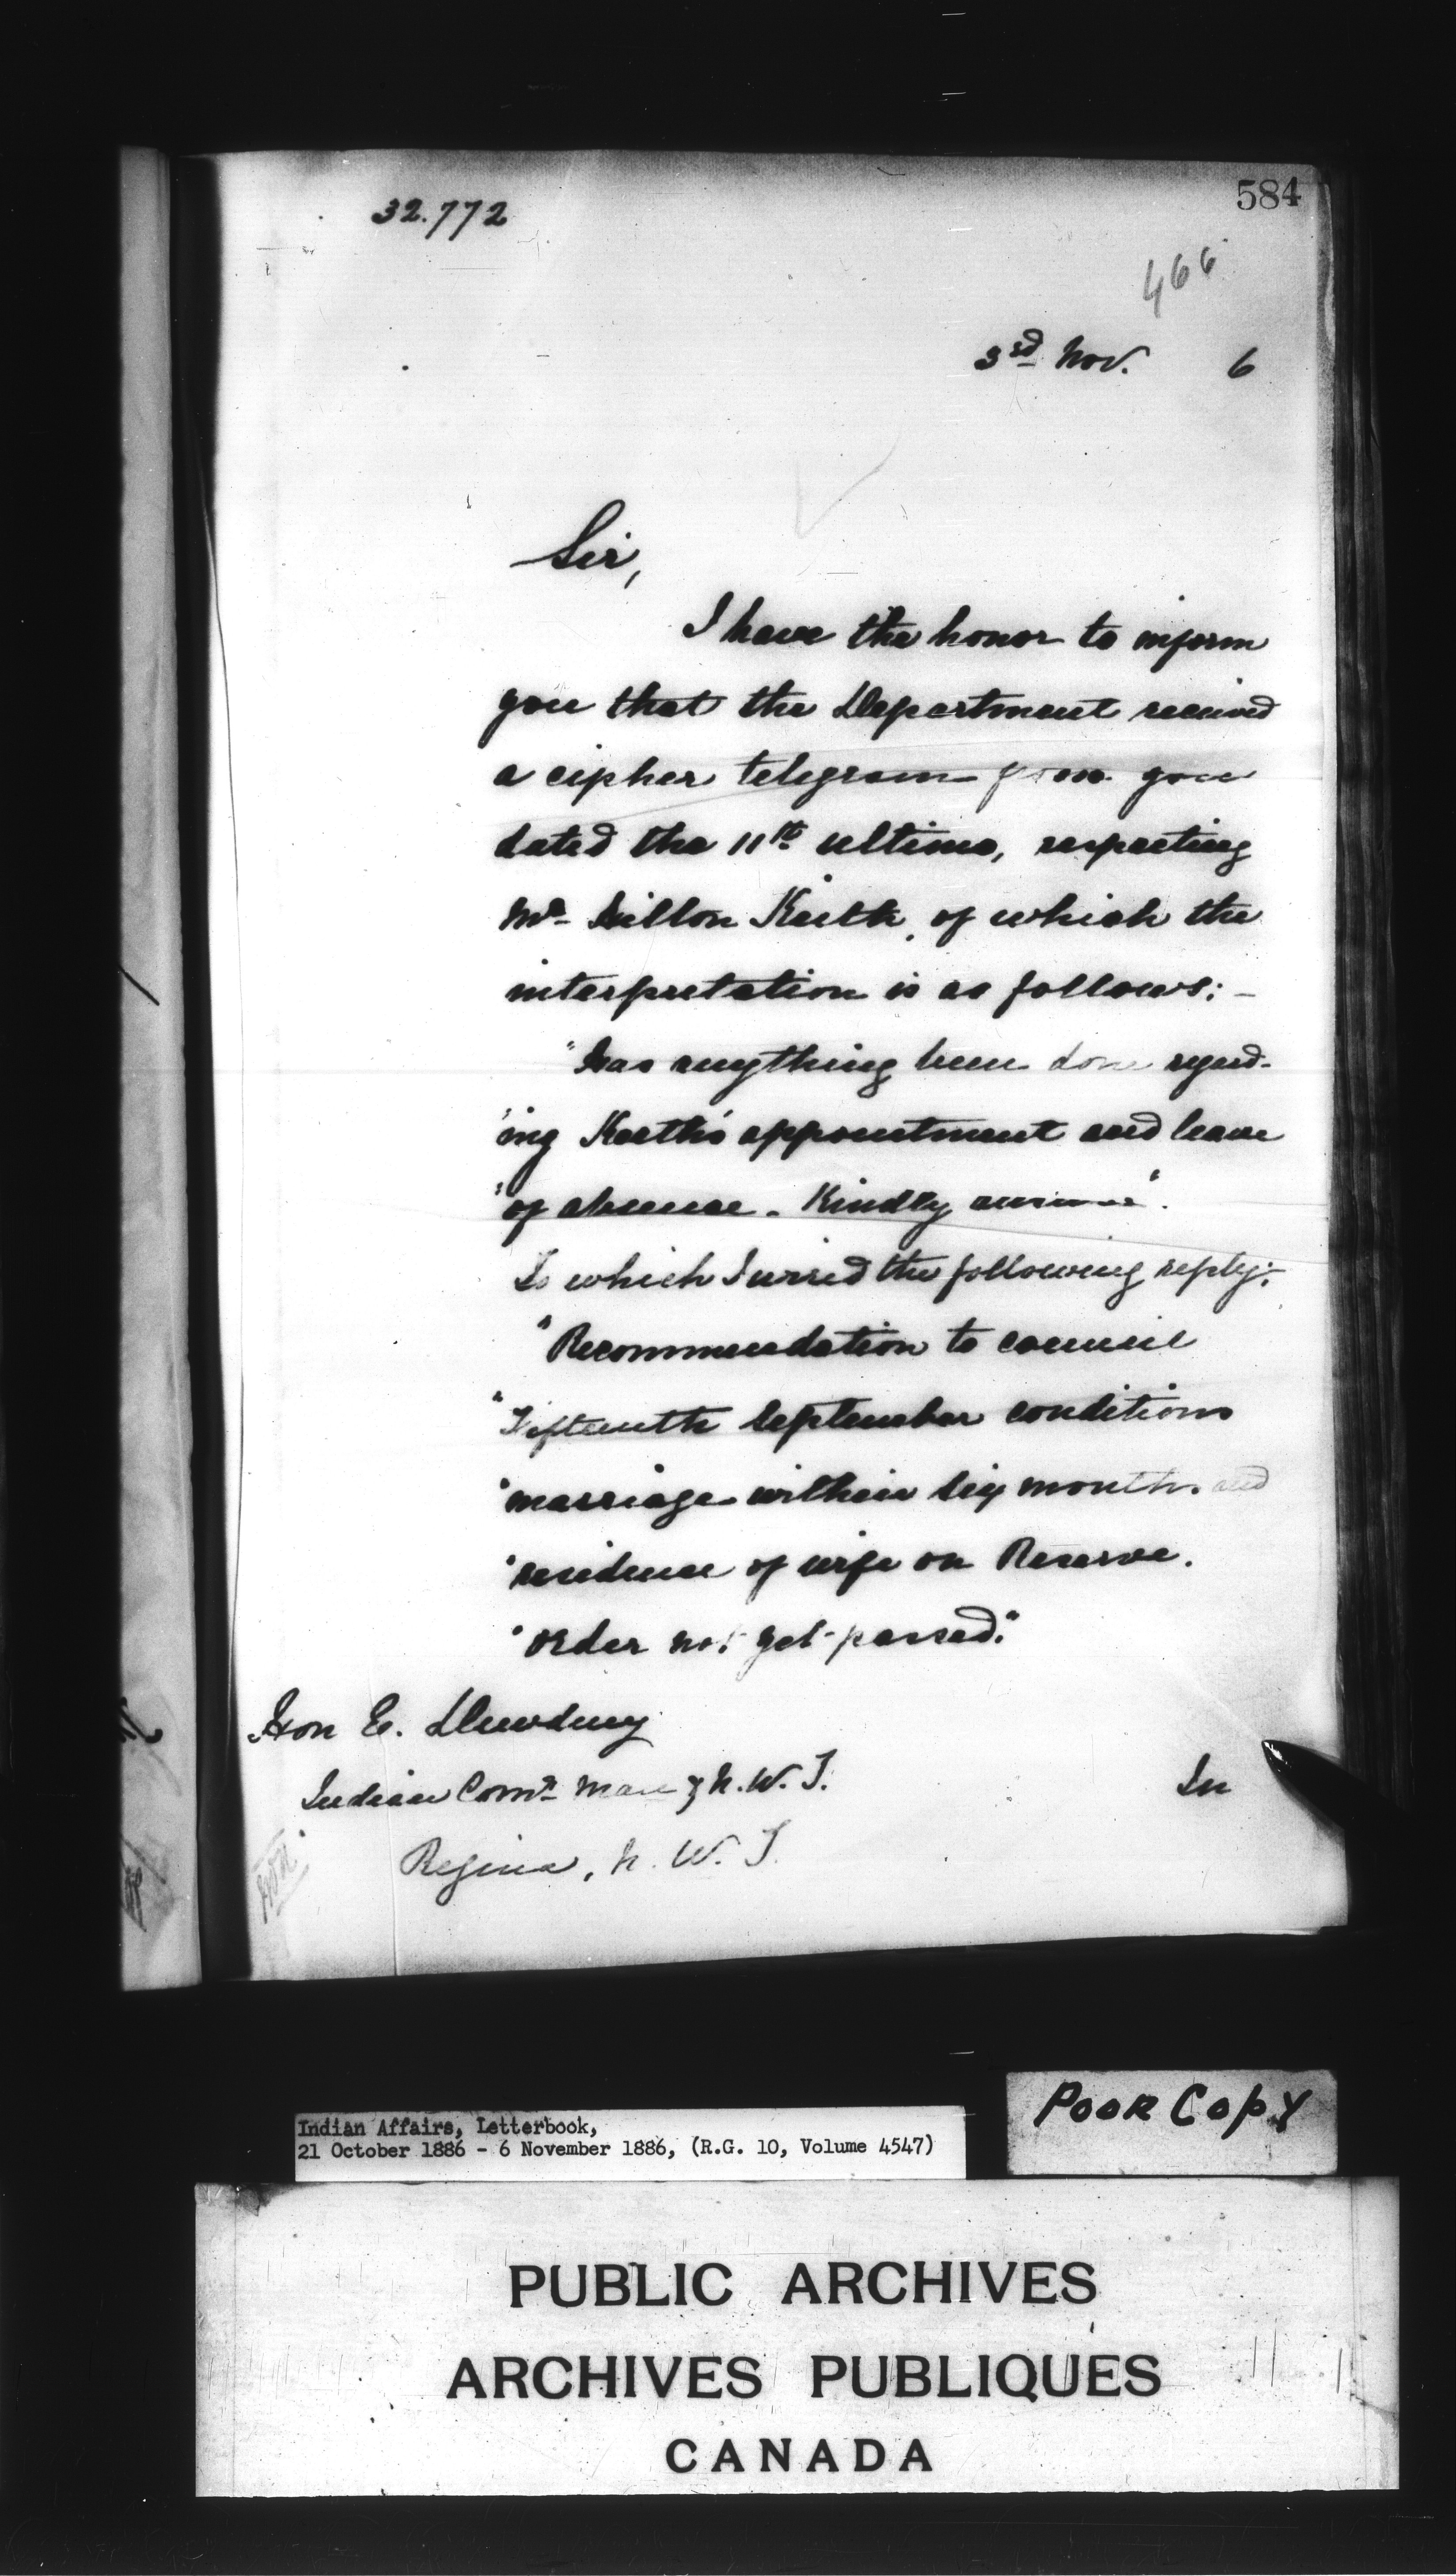 32.772
584
466
3rd Nov. 6
Sir,
I have the honor to inform
you that the Department received
a cipher telegram from you
dated the 11th ultimo, respecting
Mr Hilton Keith, of which the
interpretation is as follows:-
"Has anything been done regard-
"ing Keith's appointment and leave
"of absence. Kindly answer".
To which I wired the following reply:-
"Recommendation to council
"Fifteenth September conditions
"marriage within six months and
"residence of wife on Reserve.
"Order not yet passed."
Hon E. Dewdney
Indian Comr. Man & N.W.T.
Regina, N.W.T.
In
Indian Affairs, Letterbook,
21 October 1886 - 6 November 1886, (R.G. 10, Volume 4547)
POOR COPY
PUBLIC ARCHIVES
ARCHIVES PUBLIQUES
CANADA